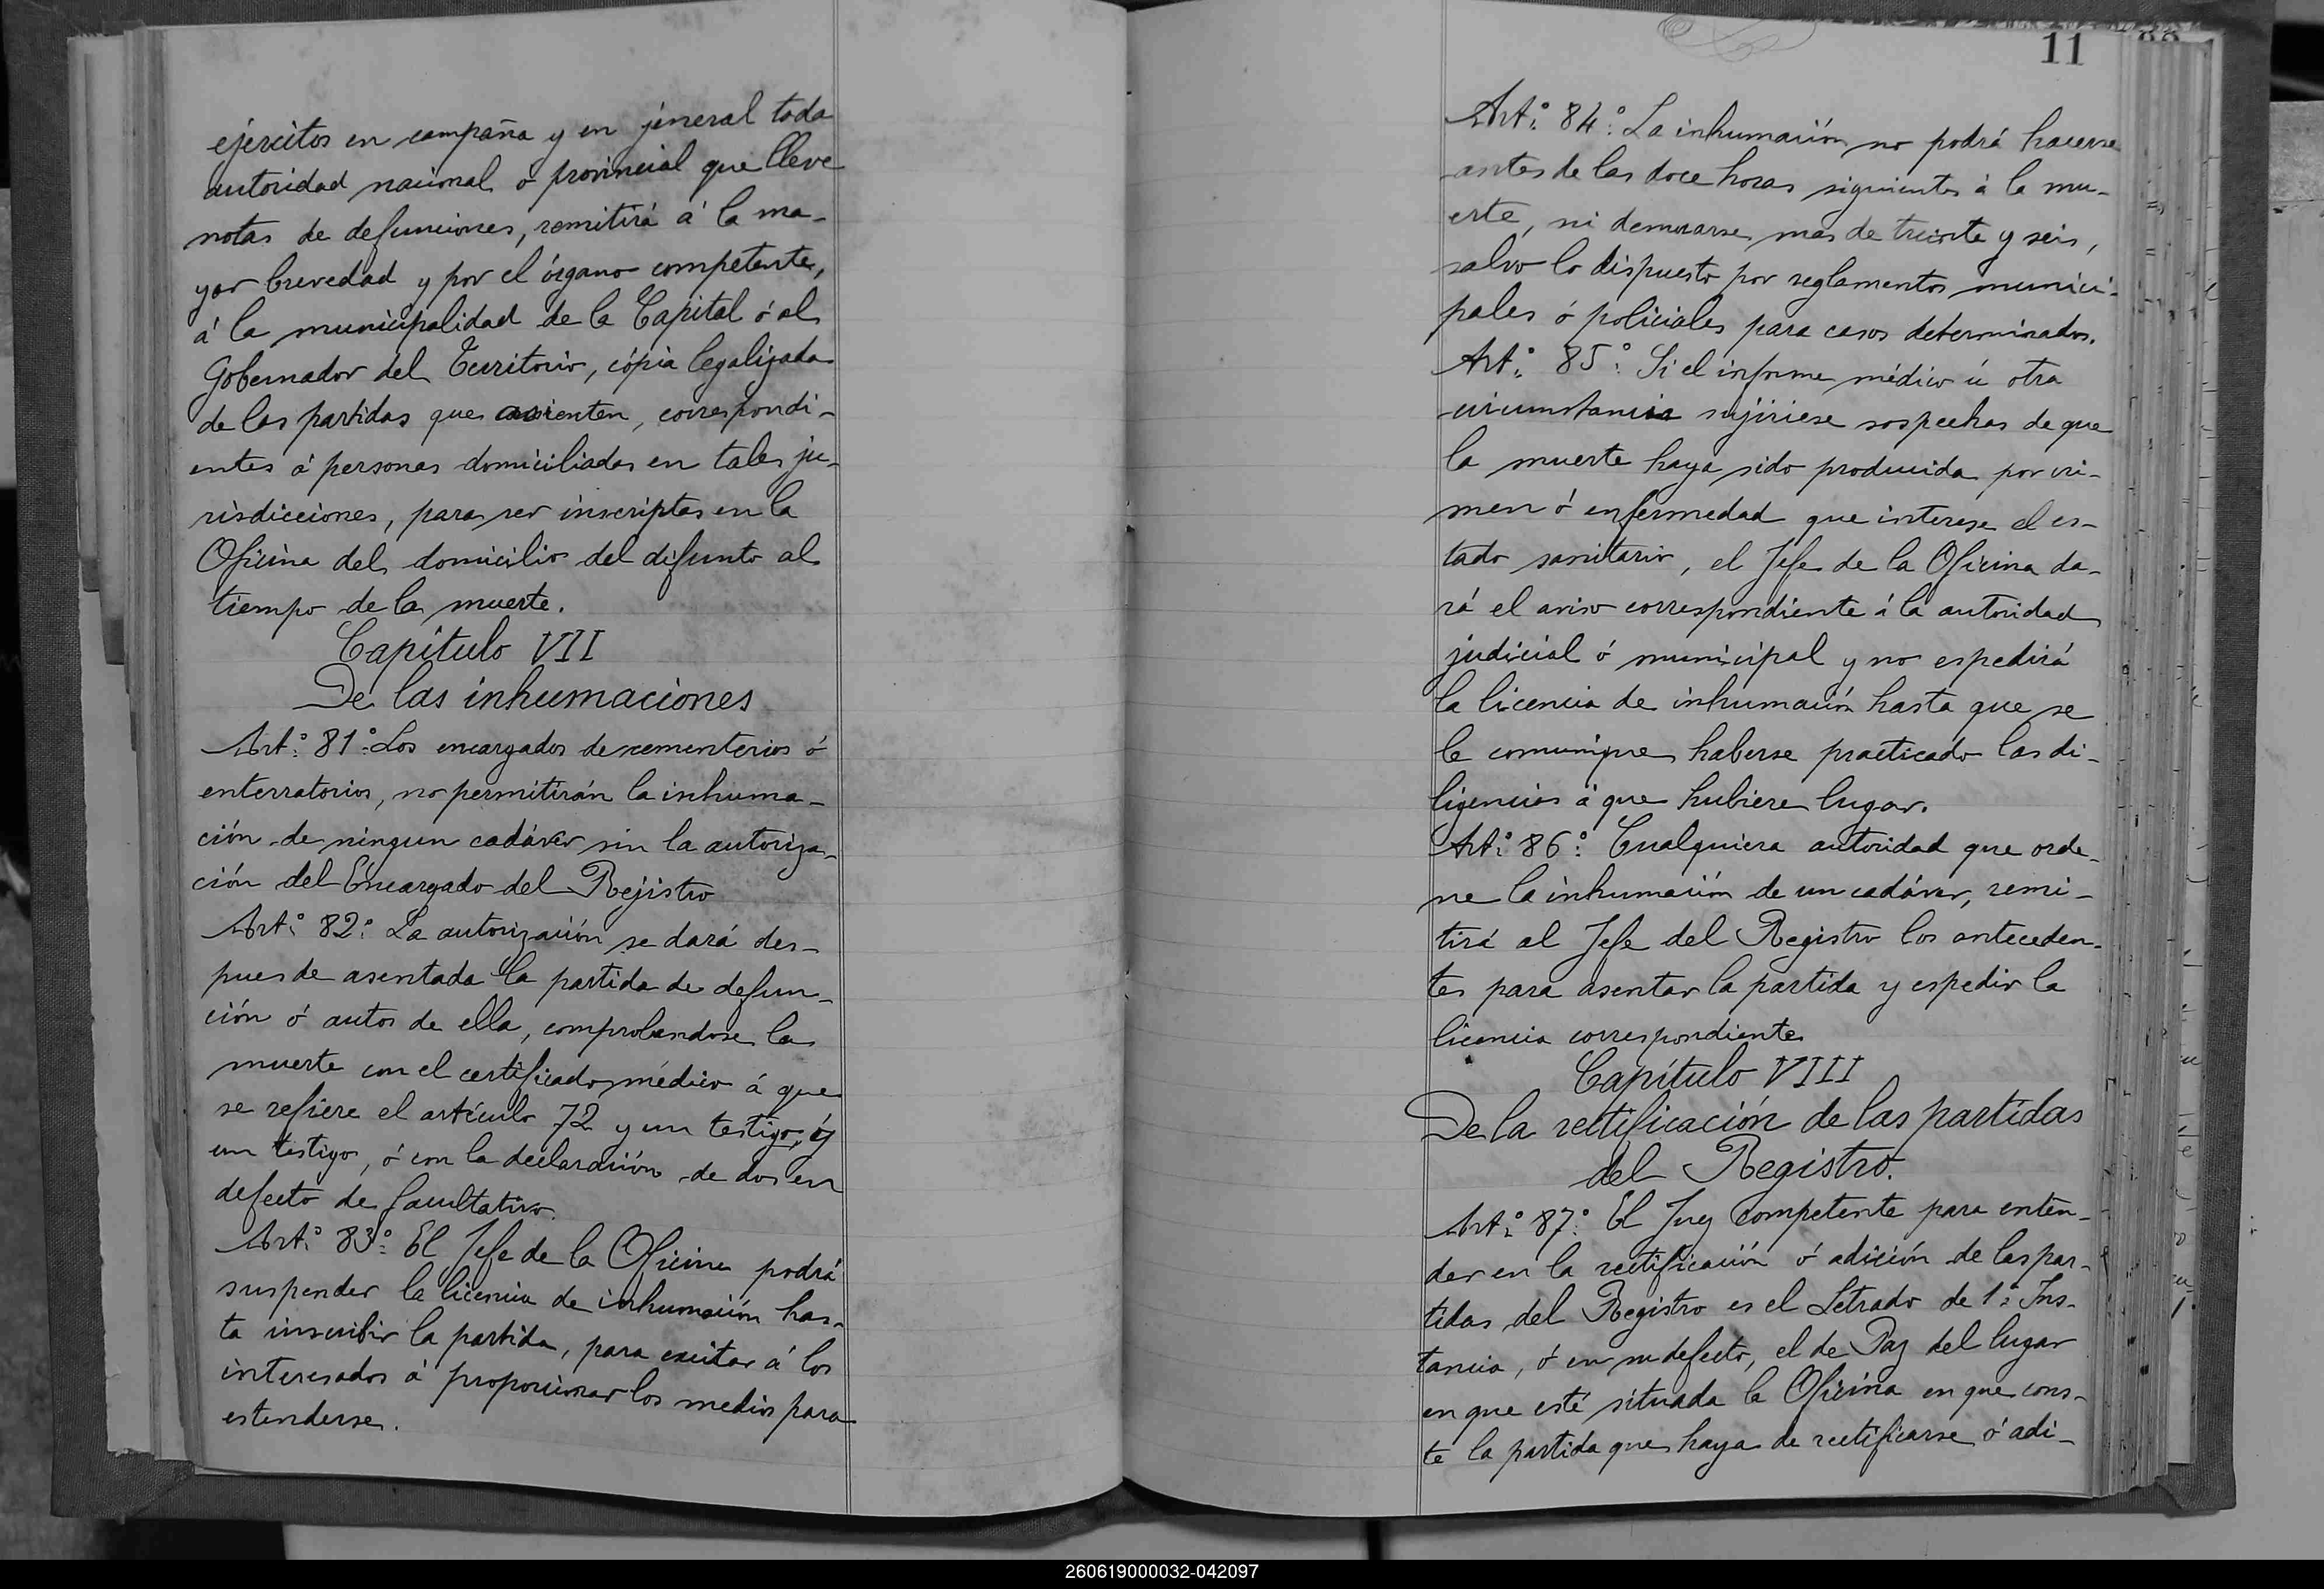 ejércitos en campaña y en jeneral toda
autoridad nacional ó provincial que lleve
notas de defunciones, remitirá á la ma-
yor brevedad y por el órgano competente,
á la municipalidad de la Capital ó al
Gobernador del Territorio, cópia legalizada
de las partidas que asienten, correspondi-
entes á personas domiciliadas en tales ju-
risdicciones, para ser inscriptas en la
Oficina del domicilio del difunto al
tiempo de la muerte.
Capítulo VII
De las inhumaciones
Art.º 81º Los encargados de cementerios ó
enterratorios, no permitirán la inhuma-
ción de ningun cadáver sin la autoriza-
ción del Encargado del Rejistro
Art.º 82º La autorización se dará des-
pues de asentada la partida de defun-
ción ó autos de ella, comprobandose la
muerte con el certificado médico á que
se refiere el artículo 72 y un testigo, ó
un testigo, ó con la declaración de dos en
defecto de facultativo.
Art.º 83º El Jefe de la Oficina podrá
suspender la licencia de inhumación has-
ta inscribir la partida, para excitar á los
interesados á proporcionar los medios para
estenderse.
11
Art.º 84º La inhumación no podrá hacerse
antes de las doce horas siguientes á la mu-
erte, ni demorarse mas de treinta y seis,
salvo lo dispuesto por reglamentos munici-
pales ó policiales para casos determinados.
Art.º 85º Si el informe médico ú otra
circunstancia sujiriese sospechas de que
la muerte haya sido producida por cri-
men ó enfermedad que interese el es-
tado sanitario, el Jefe de la Oficina da-
rá el aviso correspondiente á la autoridad
judicial ó municipal y no espedirá
la licencia de inhumación hasta que se
le comunique haberse practicado las di-
ligencias á que hubiere lugar.
Art.º 86º Cualquiera autoridad que orde-
ne la inhumación de un cadáver, remi-
tirá al Jefe del Registro los anteceden-
tes para asentar la partida y espedir la
licencia correspondiente
Capítulo VIII
De la rectificación de las partidas
del Registro.
Art.º 87º El Juez Competente para enten-
der en la rectificación ó adición de las par-
tidas del Registro es el Letrado de 1ª Ins-
tancia, ó en su defecto, el de Paz del lugar
en que esté situada la Oficina en que cons-
te la partida que haya de rectificarse ó adi-
260619000032-042097